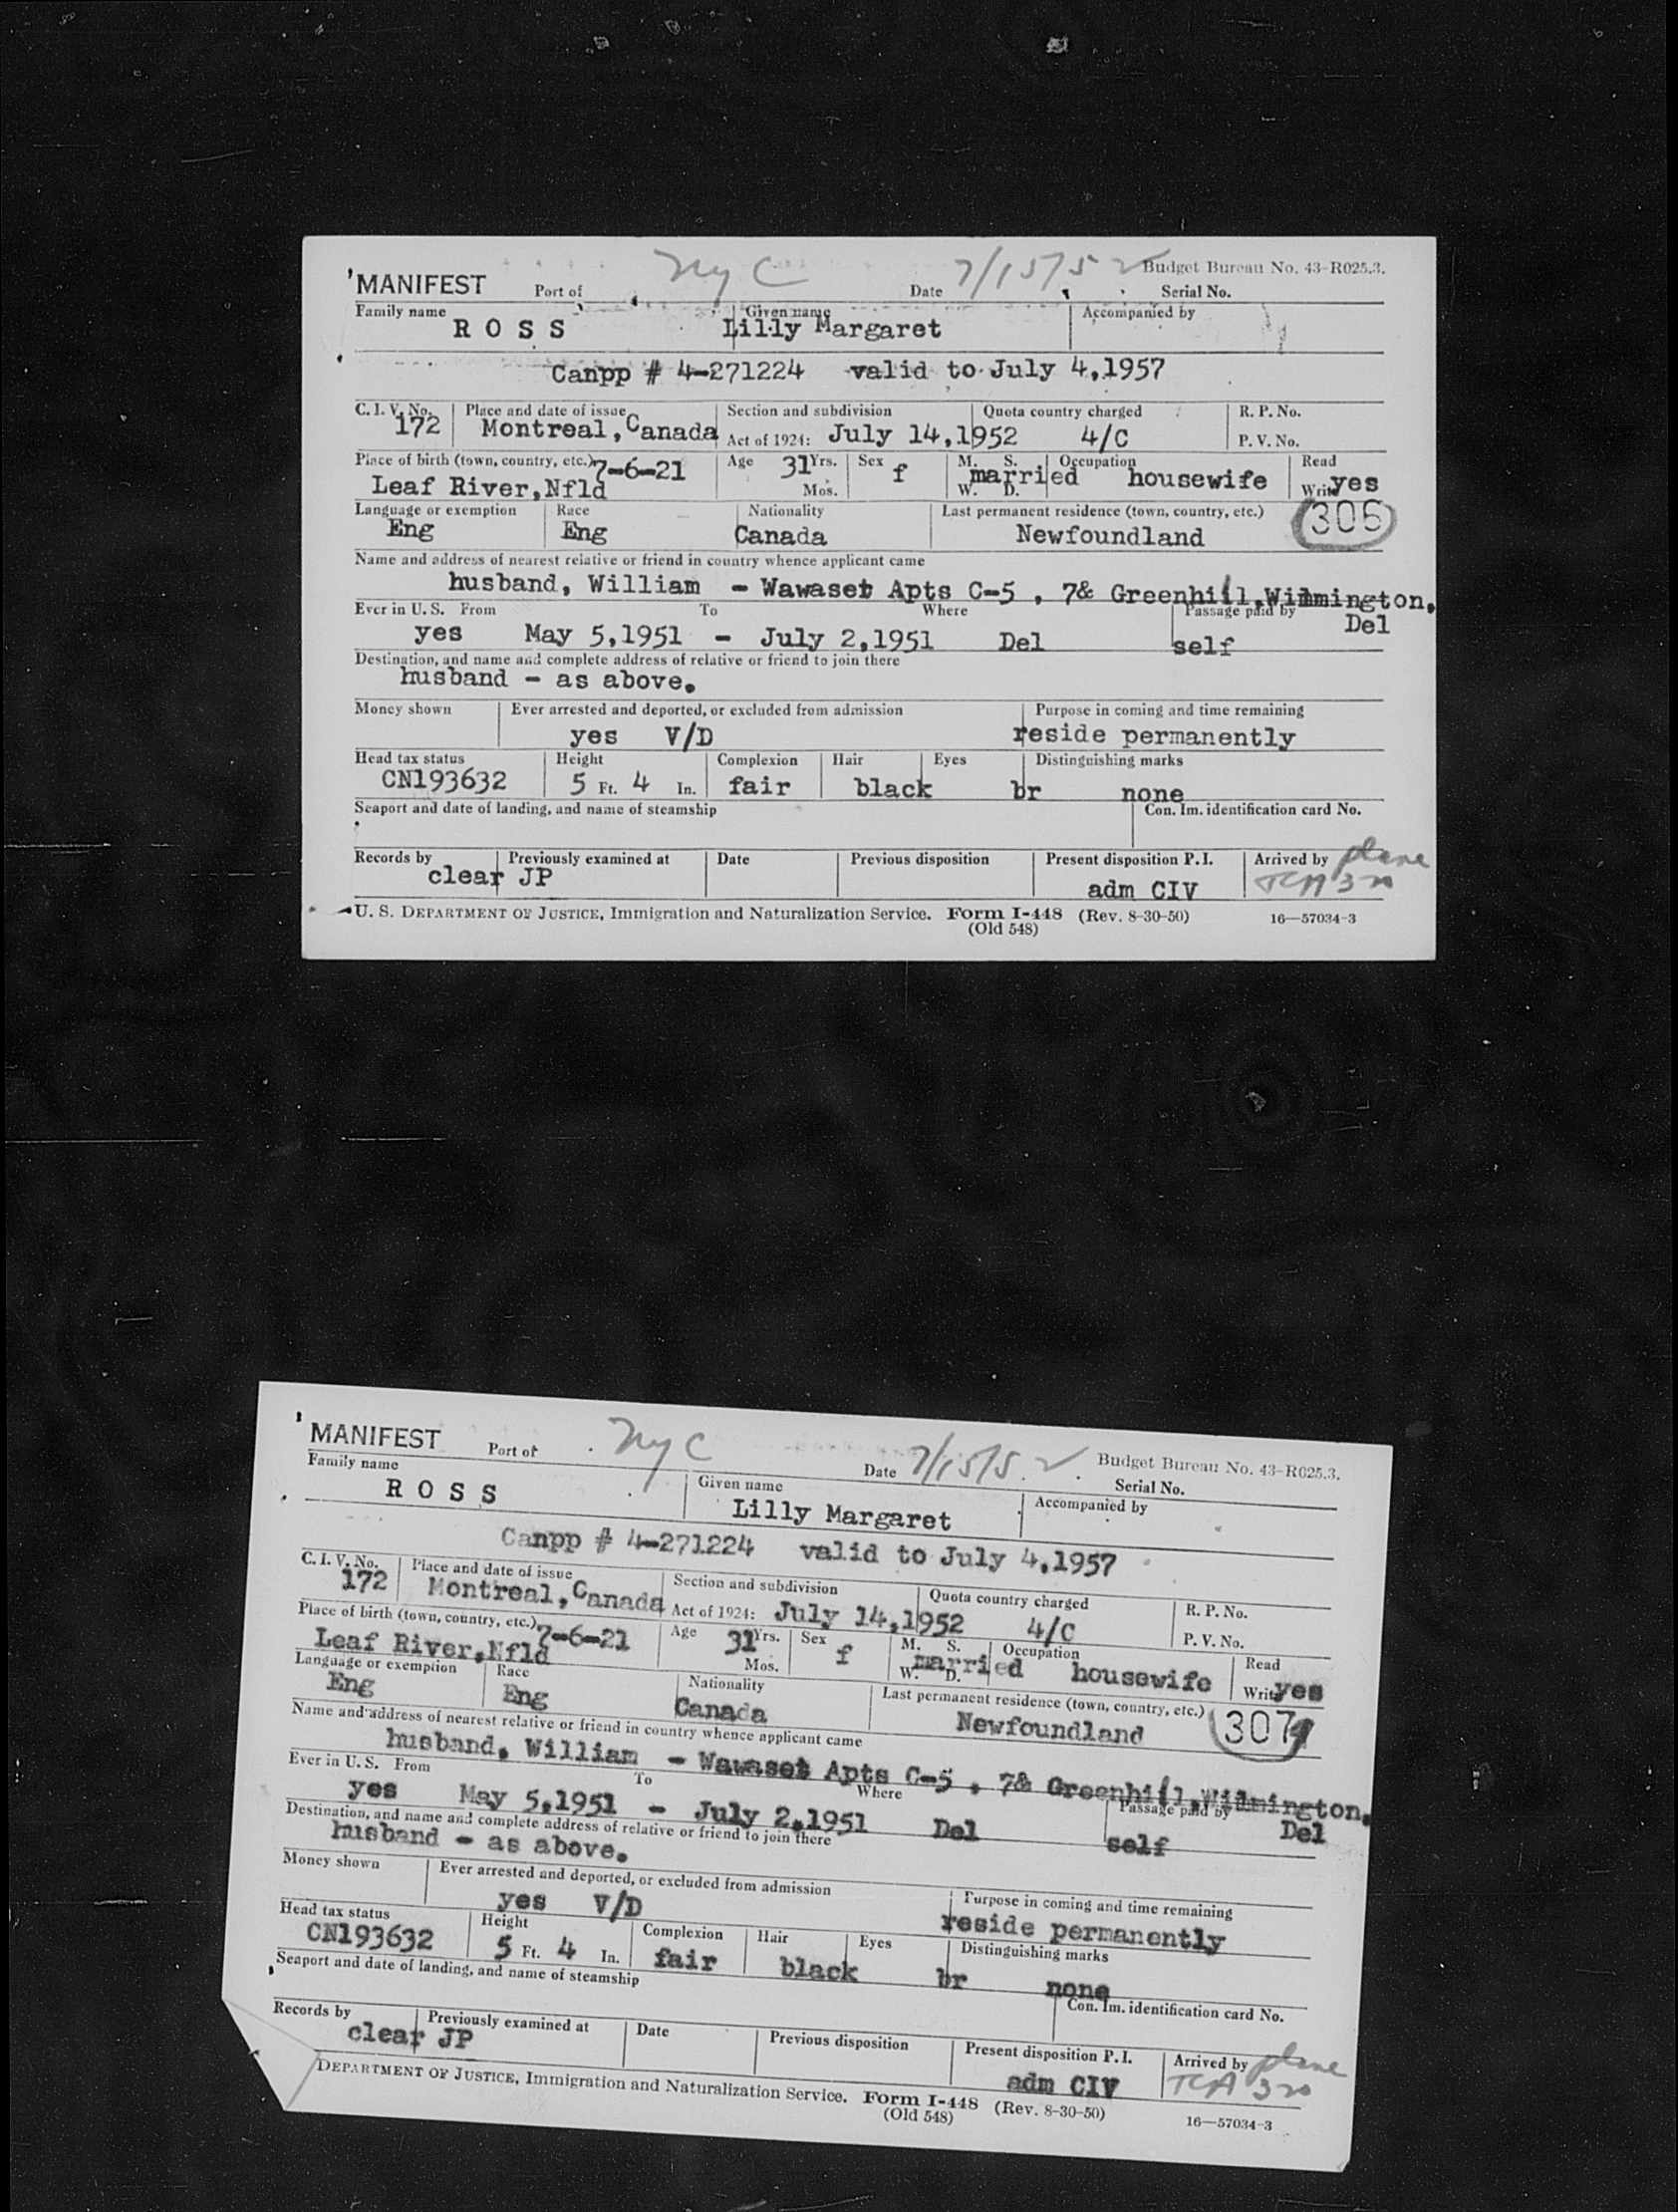 MANIFEST Port of NYC Date 7/15/52 Budget Bureau No. 43-R025.3.
Serial No.
Family name Given name Accompanied by
R O S S Lilly Margaret
Canpp # 4-271224 valid to July 4,1957
C. I. V. No. Place and date of issue Section and subdivision Quota country charged R. P. No.
172 Montreal, Canada Act of 1924: July 14,1952 4/C P. V. No.
Place of birth (town, country, etc.) 7-6-21 Age 31 Yrs. Sex f M. S. married Occupation housewife Read
Leaf River,Nfld Mos. W. D. Write yes
Language or exemption Race Nationality Last permanent residence (town, country, etc.) 306
Eng Eng Canada Newfoundland
Name and address of nearest relative or friend in country whence applicant came
husband, William - Wawaset Apts C-5 , 7& Greenhill,Wilmington,
Ever in U. S. From To Where Passage paid by Del
yes May 5,1951 - July 2,1951 Del self
Destination, and name and complete address of relative or friend to join there
husband - as above.
Money shown Ever arrested and deported, or excluded from admission Purpose in coming and time remaining
yes V/D reside permanently
Head tax status Height Complexion Hair Eyes Distinguishing marks
CN193632 5 Ft. 4 In. fair black br none
Seaport and date of landing, and name of steamship Con. Im. identification card No.
Records by Previously examined at Date Previous disposition Present disposition P. I. Arrived by plane
clear JP adm CIV TCA 320
U. S. DEPARTMENT OF JUSTICE, Immigration and Naturalization Service. Form I-448 (Rev. 8-30-50) 16—57034-3
(Old 548)
MANIFEST Port of NYC Date 7/15/52 Budget Bureau No. 43-R025.3.
Serial No.
Family name Given name Accompanied by
R O S S Lilly Margaret
Canpp # 4-271224 valid to July 4,1957
C. I. V. No. Place and date of issue Section and subdivision Quota country charged R. P. No.
172 Montreal, Canada Act of 1924: July 14,1952 4/C P. V. No.
Place of birth (town, country, etc.) 7-6-21 Age 31 Yrs. Sex f M. S. married Occupation housewife Read
Leaf River,Nfld Mos. W. D. Write yes
Language or exemption Race Nationality Last permanent residence (town, country, etc.) 307
Eng Eng Canada Newfoundland
Name and address of nearest relative or friend in country whence applicant came
husband, William - Wawaset Apts C-5 , 7& Greenhill,Wilmington,
Ever in U. S. From To Where Passage paid by Del
yes May 5,1951 - July 2,1951 Del self
Destination, and name and complete address of relative or friend to join there
husband - as above.
Money shown Ever arrested and deported, or excluded from admission Purpose in coming and time remaining
yes V/D reside permanently
Head tax status Height Complexion Hair Eyes Distinguishing marks
CN193632 5 Ft. 4 In. fair black br none
Seaport and date of landing, and name of steamship Con. Im. identification card No.
Records by Previously examined at Date Previous disposition Present disposition P. I. Arrived by plane
clear JP adm CIV TCA 320
DEPARTMENT OF JUSTICE, Immigration and Naturalization Service. Form I-448 (Rev. 8-30-50) 16—57034-3
(Old 548)